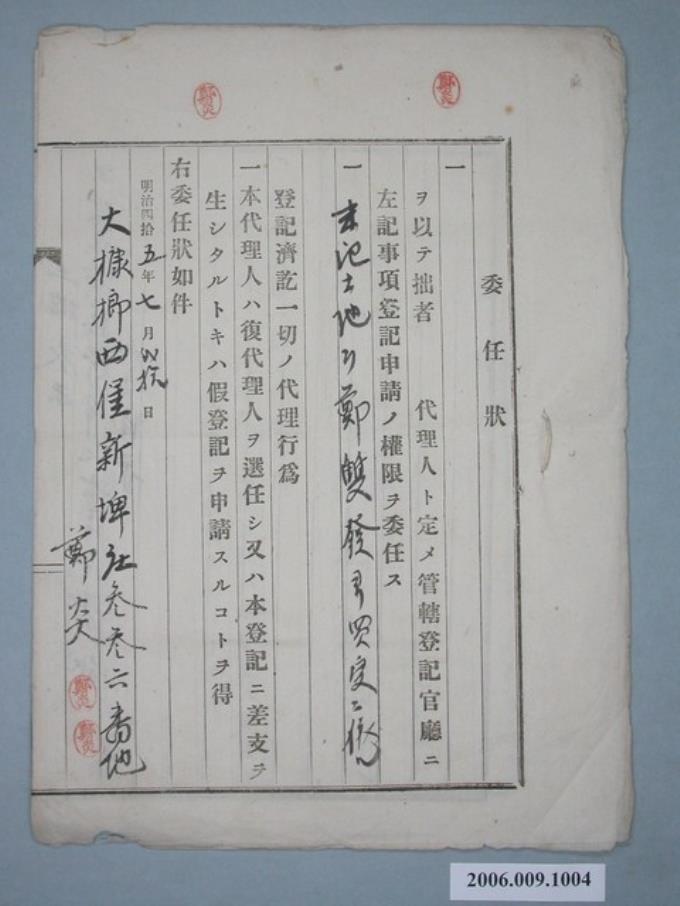 委任狀
一
ヲ以テ拙者 代理人ト定メ管轄登記官廳ニ
左記事項登記申請ノ權限ヲ委任ス
一 末記土地ヲ鄭雙發ヨリ買受ニ係ル
登記濟訖一切ノ代理行爲
一本代理人ハ復代理人ヲ選任シ又ハ本登記ニ差支ヲ
生シタルトキハ假登記ヲ申請スルコトヲ得
右委任狀如件
明治四拾五年七月 日
大槺榔西堡新埤庄參參六番地
鄭炎
鄭炎
鄭炎
鄭炎
鄭炎
2006.009.1004